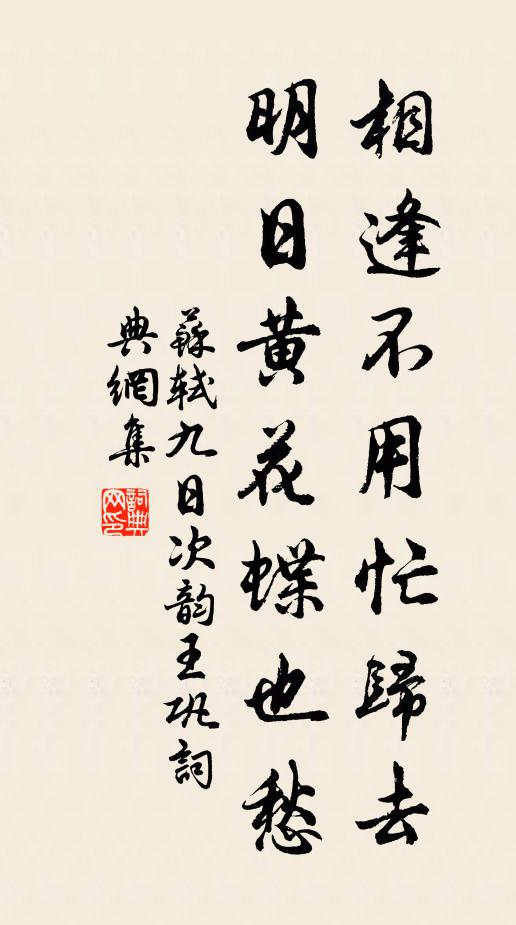 相逢不用忙歸去
明日黃花蝶也愁
蘇軾九日次韵王巩詞
典網集
詞典网印